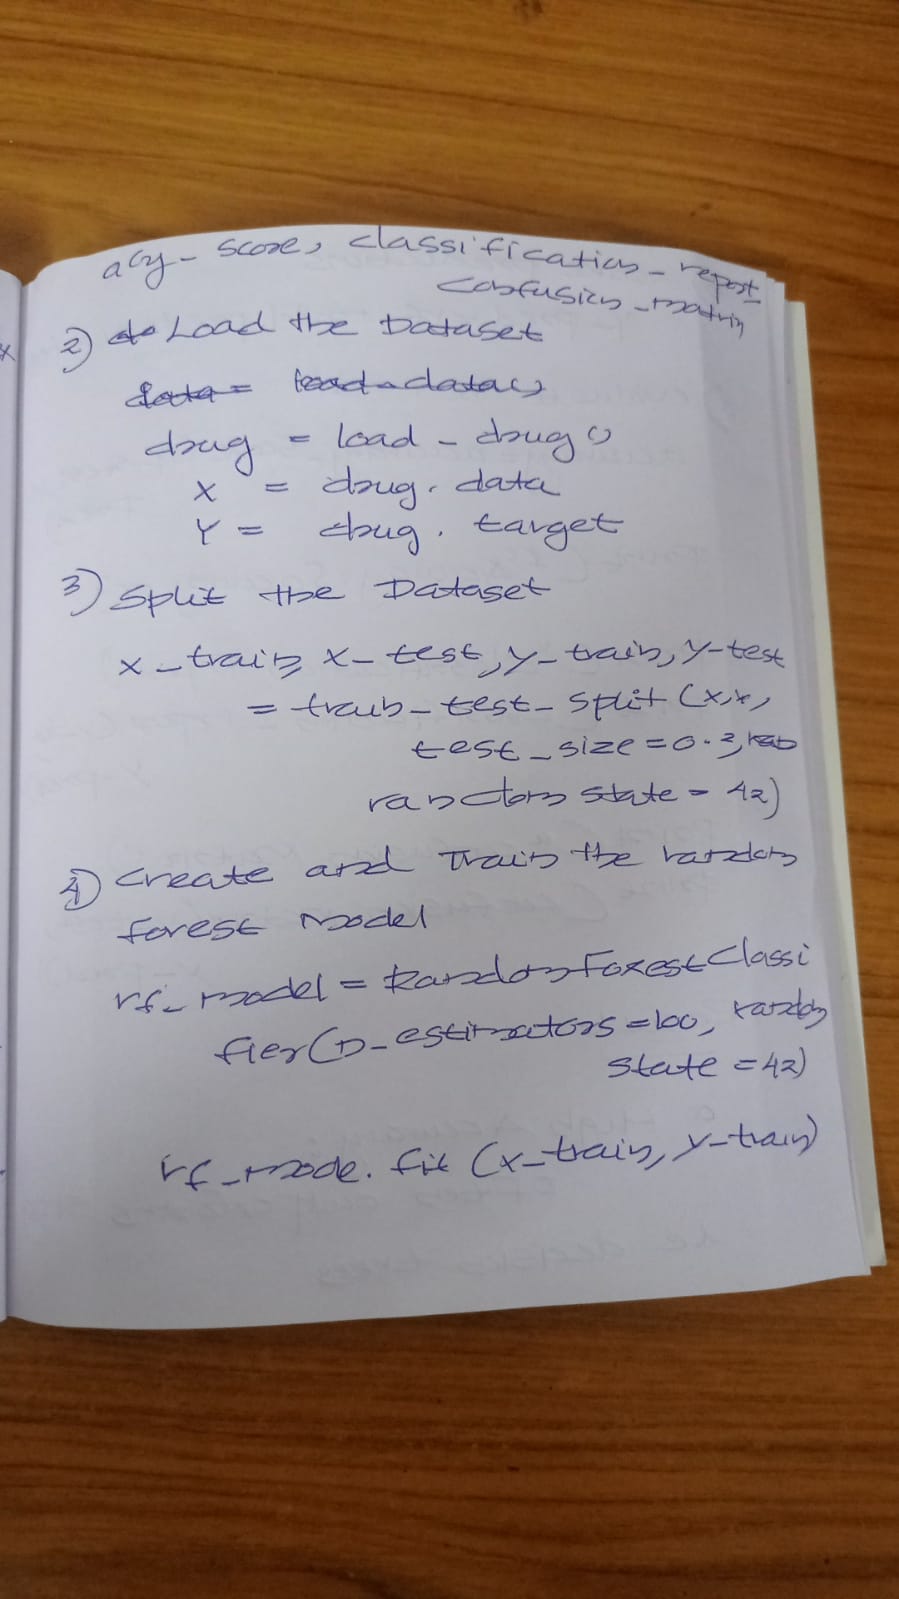 acy_score, classification_report
confusion_matrix
2) Load the Dataset
data = load_data()
drug = load_drug()
X = drug.data
Y = drug.target
3) Split the Dataset
x_train, x_test, y_train, y-test
= train_test_split (x,x,
test_size=0.3,
random state = 42)
4) Create and Train the random
forest Model
rf_model = RandomForestClassi
fier(n_estimators=100, random
state=42)
rf_mode.fit (x_train, y_train)